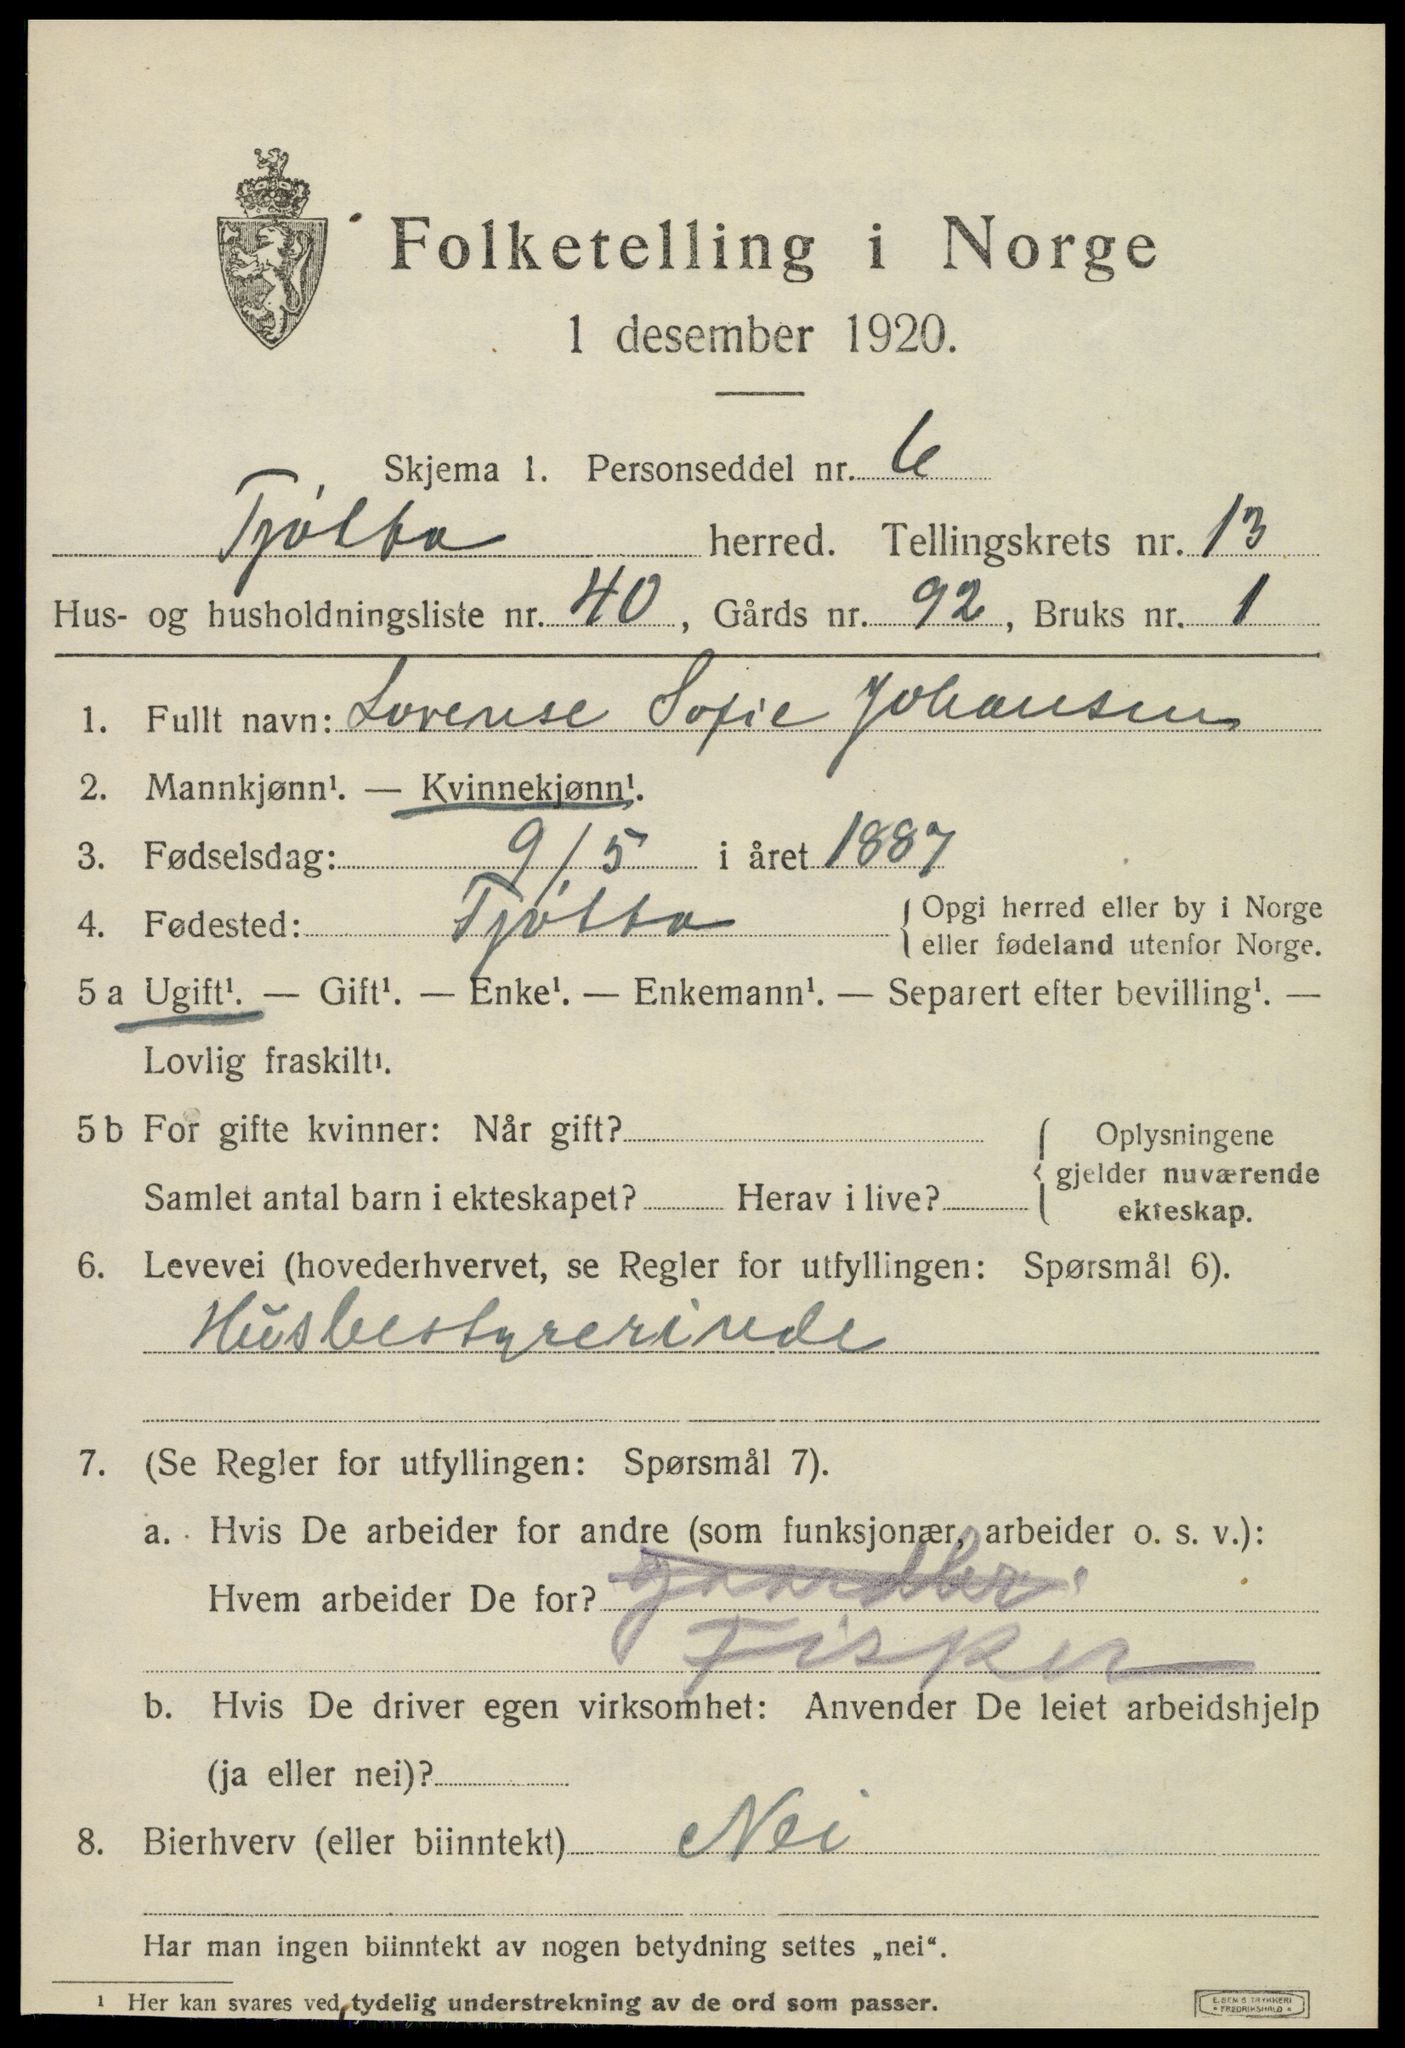 Folketelling i Norge
1 desember 1920.
Skjema 1. Personseddel nr. 6
Tjøtta herred. Tellingskrets nr. 13
Hus- og husholdningsliste nr. 40, Gårds nr. 92, Bruks nr. 1
1. Fullt navn: Lorense Sofie Johansen
2. Mannkjønn¹. — Kvinnekjønn¹.
3. Fødselsdag: 9/5 i året 1887
4. Fødested: Tjøtta { Opgi herred eller by i Norge
eller fødeland utenfor Norge.
5 a Ugift¹. — Gift¹. — Enke¹. — Enkemann¹. — Separert efter bevilling¹. —
Lovlig fraskilt¹.
5 b For gifte kvinner: Når gift? { Oplysningene
gjelder nuværende
Samlet antal barn i ekteskapet? Herav i live? ekteskap.
6. Levevei (hovederhvervet, se Regler for utfyllingen: Spørsmål 6).
Husbestyrerinde
7. (Se Regler for utfyllingen: Spørsmål 7).
a. Hvis De arbeider for andre (som funksjonær, arbeider o. s. v.):
Hvem arbeider De for?
Fisker
b. Hvis De driver egen virksomhet: Anvender De leiet arbeidshjelp
(ja eller nei)?
8. Bierhverv (eller biinntekt) Nei
Har man ingen biinntekt av nogen betydning settes „nei“.
¹ Her kan svares ved tydelig understrekning av de ord som passer.
E. SEM'S TRYKKERI
FREDRIKSHALD